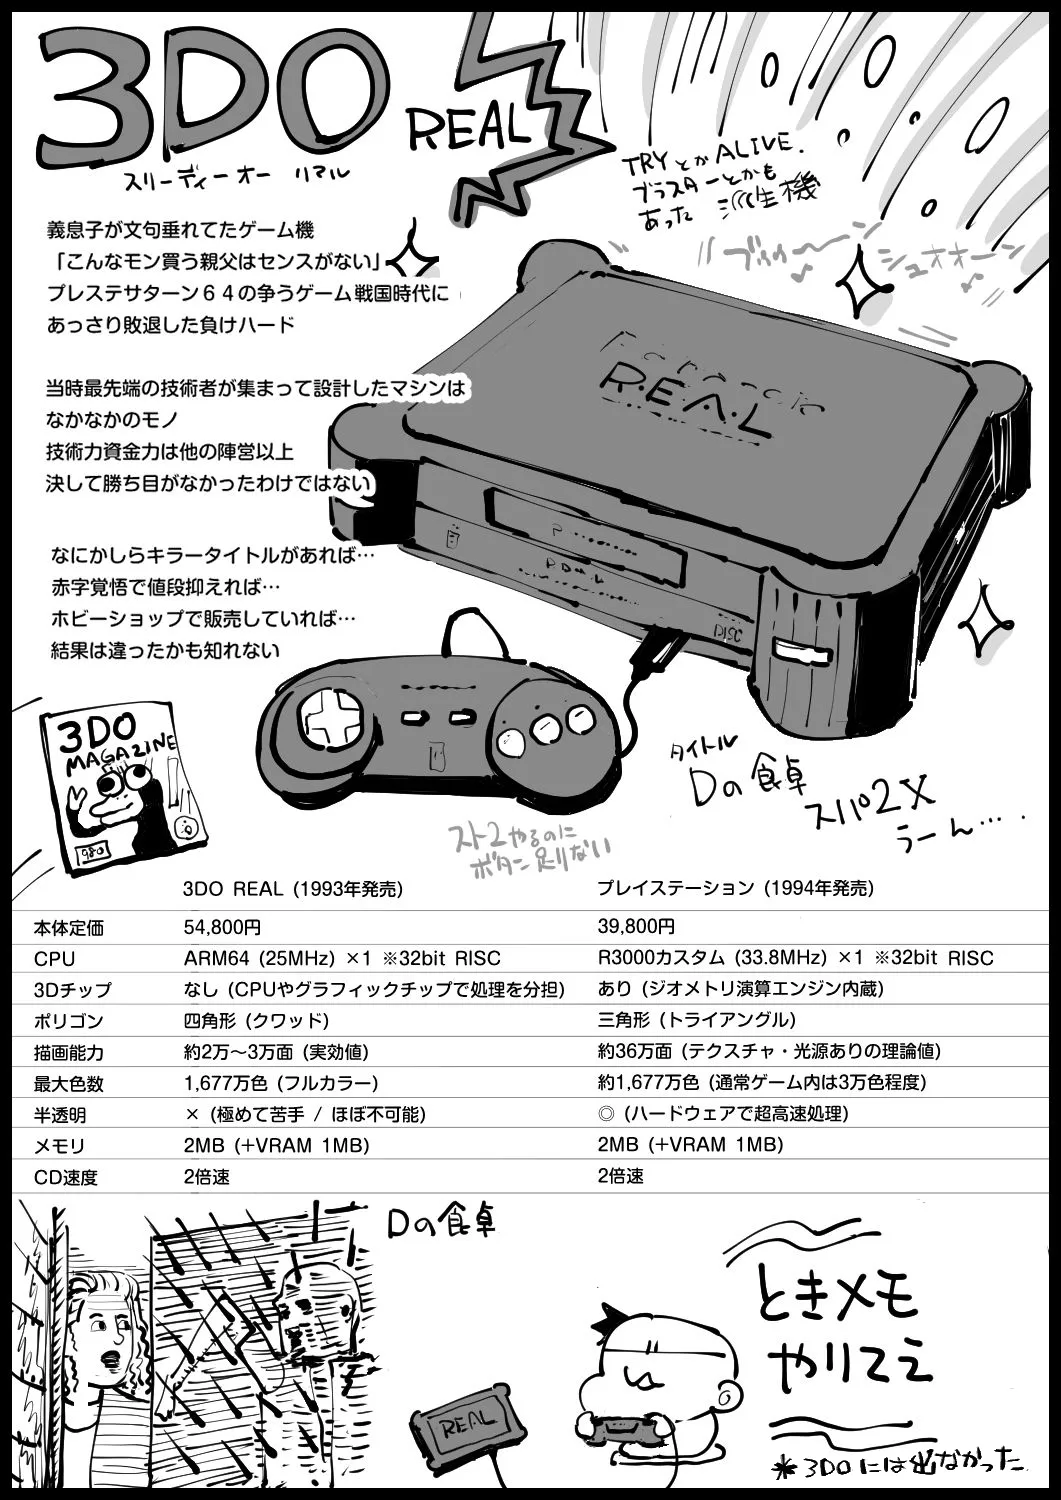 3DO REAL
スリーディーオー リアル
TRYとかALIVE.
ブラスターとかも
あった 派生機
シュオオーーン
義息子が文句垂れてたゲーム機
「こんなモン買う親父はセンスがない」
プレステサターン64の争うゲーム戦国時代に
あっさり敗退した負けハード
当時最先端の技術者が集まって設計したマシンは
なかなかのモノ
技術力資金力は他の陣営以上
決して勝ち目がなかったわけではない
なにかしらキラータイトルがあれば…
赤字覚悟で値段抑えれば…
ホビーショップで販売していれば…
結果は違ったかも知れない
R.E.A.L
DISC
3DO
MAGAZINE
980
タイトル
Dの食卓
スパ2X
うーん…．
スト2やるのに
ボタン足りない
3DO REAL (1993年発売) プレイステーション (1994年発売)
本体定価 54,800円 39,800円
CPU ARM64 (25MHz) ×1 ※32bit RISC R3000カスタム (33.8MHz) ×1 ※32bit RISC
3Dチップ なし (CPUやグラフィックチップで処理を分担) あり (ジオメトリ演算エンジン内蔵)
ポリゴン 四角形 (クワッド) 三角形 (トライアングル)
描画能力 約2万〜3万面 (実効値) 約36万面 (テクスチャ・光源ありの理論値)
最大色数 1,677万色 (フルカラー) 約1,677万色 (通常ゲーム内は3万色程度)
半透明 × (極めて苦手 / ほぼ不可能) ◎ (ハードウェアで超高速処理)
メモリ 2MB (+VRAM 1MB) 2MB (+VRAM 1MB)
CD速度 2倍速 2倍速
Dの食卓
ときメモ
やりてえ
REAL
＊3DOには出なかった